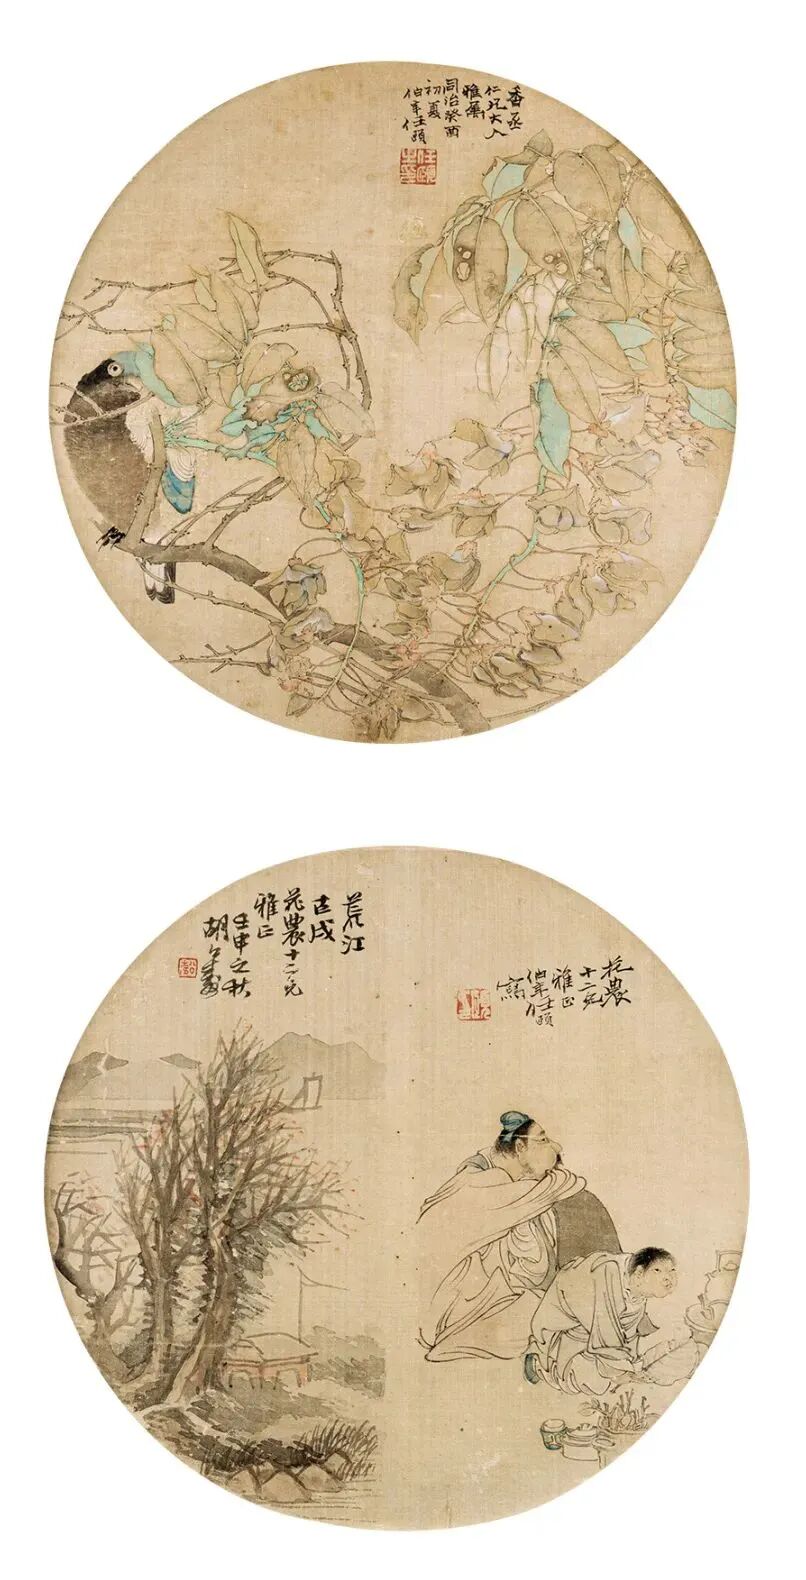 香丞
仁兄大人
雅屬
同治癸酉
初夏
伯年任頤
任頤
荒江
古戍
花農十二兄
雅正
壬申之秋
胡公壽
花農
十二兄
雅正
伯年任頤
寫